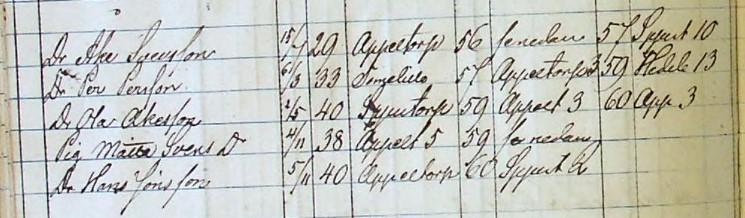 Dr Åke Svensson 15/7 29 Appeltorp 56 se nedan 57 Sqvat 10
Dr Per Persson 6/3 33 57 Appeltorp 3 59 Hedele 13
Dr Ola Åkesson 2/5 40 59 Appelt 3 60 App 3
Pig Mätta Svens D 4/11 38 Appelt 5 59 se nedan
Dr Hans Jönsson 5/11 40 Appeltorp 60